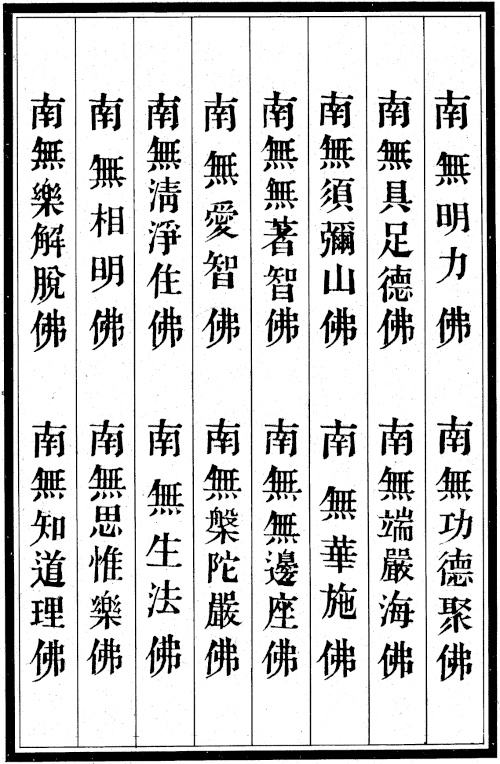 南無明力佛　南無功德聚佛
南無具足德佛　南無端嚴海佛
南無須彌山佛　南無華施佛
南無無著智佛　南無無邊座佛
南無愛智佛　南無槃陀嚴佛
南無清淨住佛　南無生法佛
南無相明佛　南無思惟樂佛
南無樂解脫佛　南無知道理佛